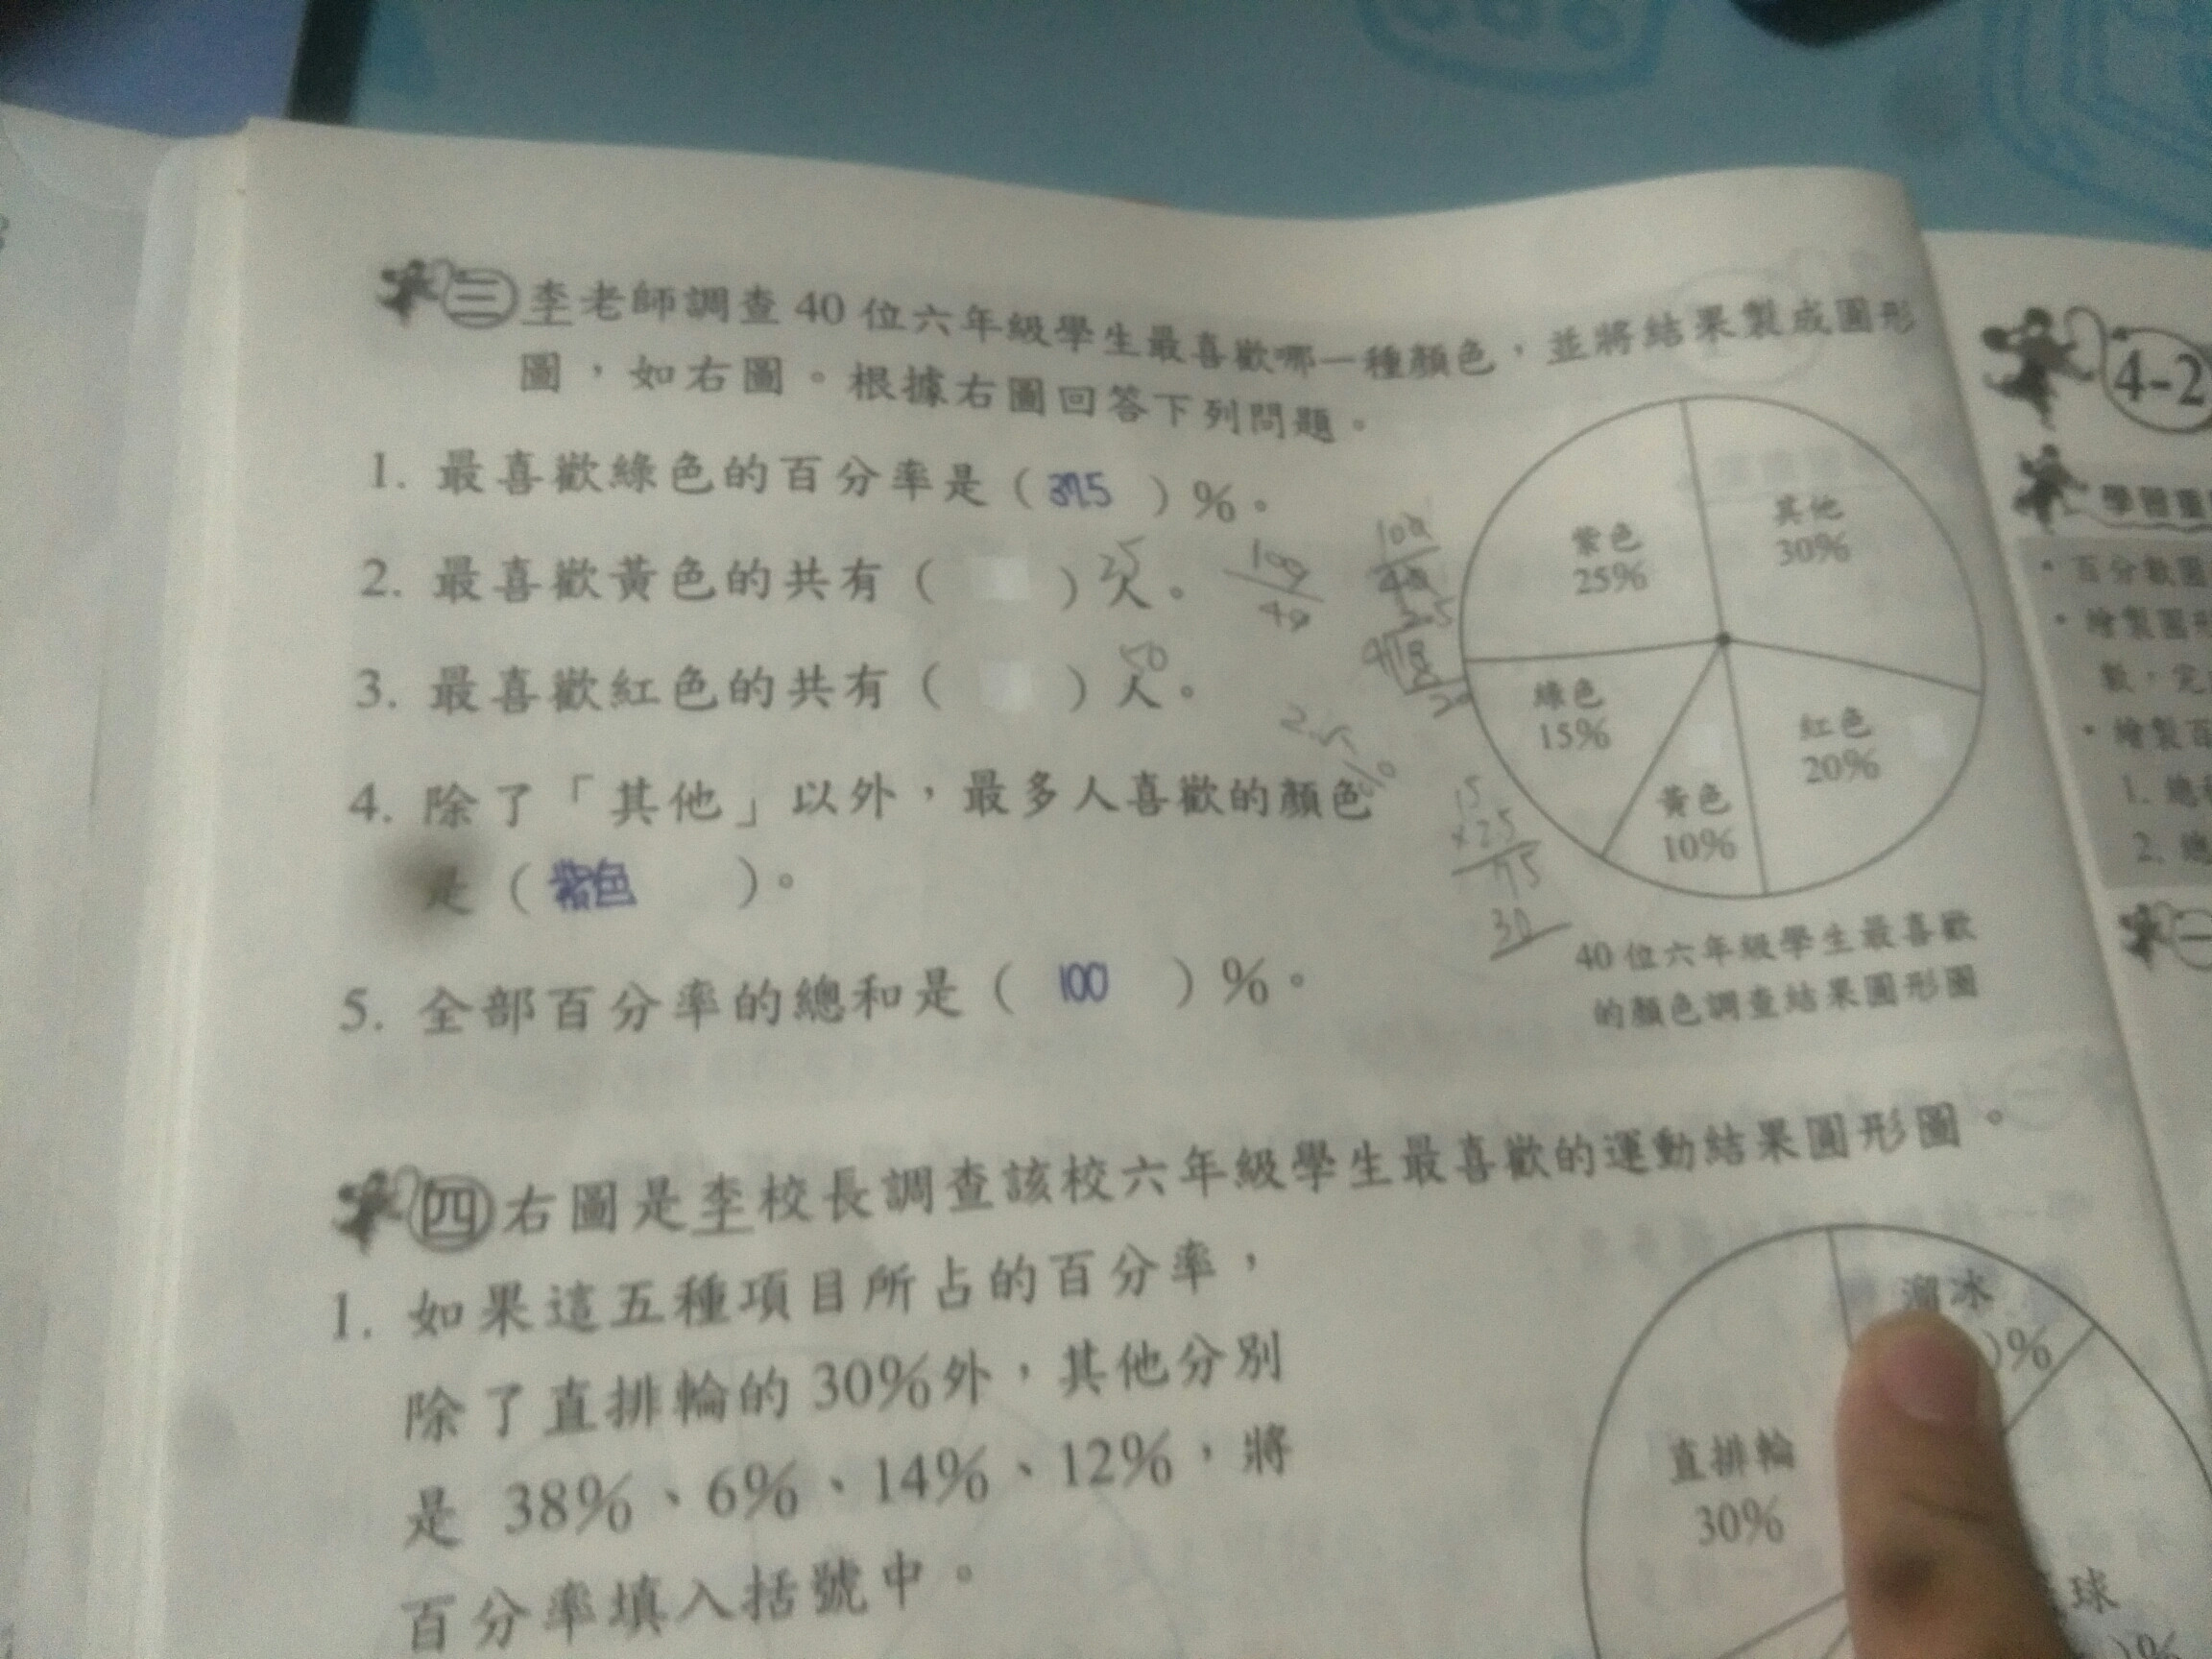 三 李老師調查 40 位六年級學生最喜歡哪一種顏色，並將結果製成圓形
圖，如右圖。根據右圖回答下列問題。
1. 最喜歡綠色的百分率是（37.5）%。
2. 最喜歡黃色的共有（ ）人。
25
100
40
100
40
3. 最喜歡紅色的共有（ ）人。
50
2.5
%
4. 除了「其他」以外，最多人喜歡的顏色
是（紫色）。
5. 全部百分率的總和是（100）%。
15
×25
75
30
紫色
25%
其他
30%
綠色
15%
紅色
20%
黃色
10%
40 位六年級學生最喜歡
的顏色調查結果圓形圖
四 右圖是李校長調查該校六年級學生最喜歡的運動結果圓形圖。
1. 如果這五種項目所占的百分率，
除了直排輪的 30%外，其他分別
是 38%、6%、14%、12%，將
百分率填入括號中。
溜冰
)%
直排輪
30%
球
)%
4-2
學習重
• 百分數圓
• 繪製圓形
數，完
• 繪製百
1. 總
2. 總
一